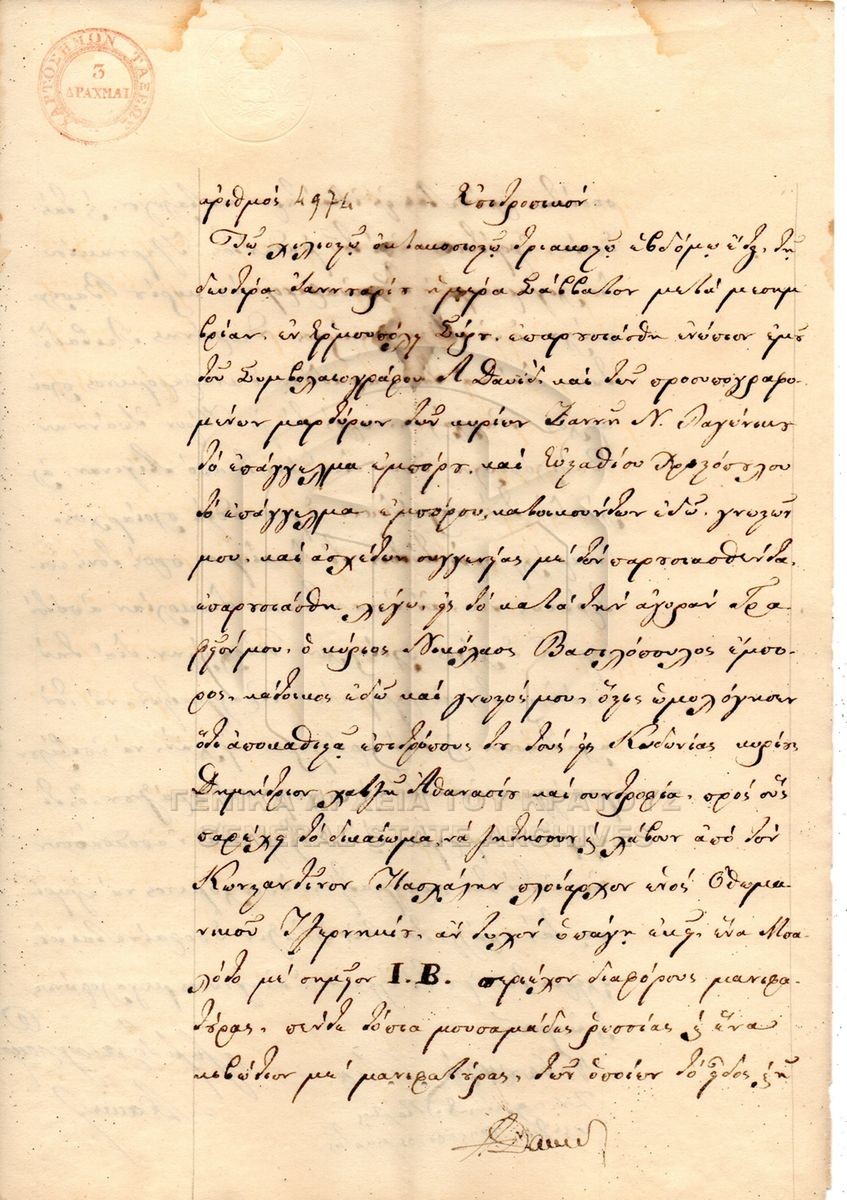 ΧΑΡΤΟΣΗΜΟΝ ΤΑΞΕΩΣ
3
ΔΡΑΧΜΑΙ
ἀριθμός 4974 Ἐπιτροπικόν
Τῷ χιλιοστῷ ὀκτακοσιοστῷ τριακοστῷ ἑβδόμῳ ἔτει, τῇ
δευτέρᾳ Ἰαννουαρίου ἡμέρᾳ Σάββατον μετά μεσημ
βρίαν, ἐν Ἑρμουπόλει Σύρου, ἐπαρουσιάσθη ἐνώπιον ἐμοῦ
τοῦ Συμβολαιογράφου Α Δαυίδ, καί τῶν προσυπογραφο-
μένων μαρτύρων τῶν κυρίων Ζαννῆ Ν.
τό ἐπάγγελμα ἐμπόρου, καί Εὐσταθίου
τό ἐπάγγελμα ἐμπόρου, κατοικούντων ἐδῶ, γνωστῶν
μου, καί ἀσχέτων συγγενείας μέ τόν παρουσιασθέντα,
ἐπαρουσιάσθη λέγω, εἰς τό κατά τήν ἀγοράν Γρα
φεῖόν μου, ὁ κύριος Νικόλαος Βασιλόπουλος ἔμπο-
ρος, κάτοικος ἐδῶ καί γνωστός μου, ὅστις ὡμολόγησεν
ὅτι ἀποκαθιστᾷ ἐπιτρόπους του τούς εἰς Κυδωνίας κυρίους
Δημήτριον χατζῆ Ἀθανασίου καί συντροφία, πρός οὕς
παρέχει τό δικαίωμα, νά ζητήσουν καί λάβουν ἀπό τόν
Κωνσταντῖνον Πασχάλην πλοίαρχον ἑνός Ὀθωμα
νικοῦ Τζερνικίου, ἄν τυχόν ὑπάγῃ ἐκεῖ, ἕνα Μπα-
λότο μέ σημεῖον I.B. περιέχον διαφόρους μανιφα
τούρας, πέντε τόπια μουσαμάδες ρωσσίας καί ἕνα
κιβώτιον μέ μανιφατούρας, τῶν ὁποίων τό εἶδος καί ἡ
Α Δαυίδ
ΓΕΝΙΚΑ ΑΡΧΕΙΑ ΤΟΥ ΚΡΑΤΟΥΣ